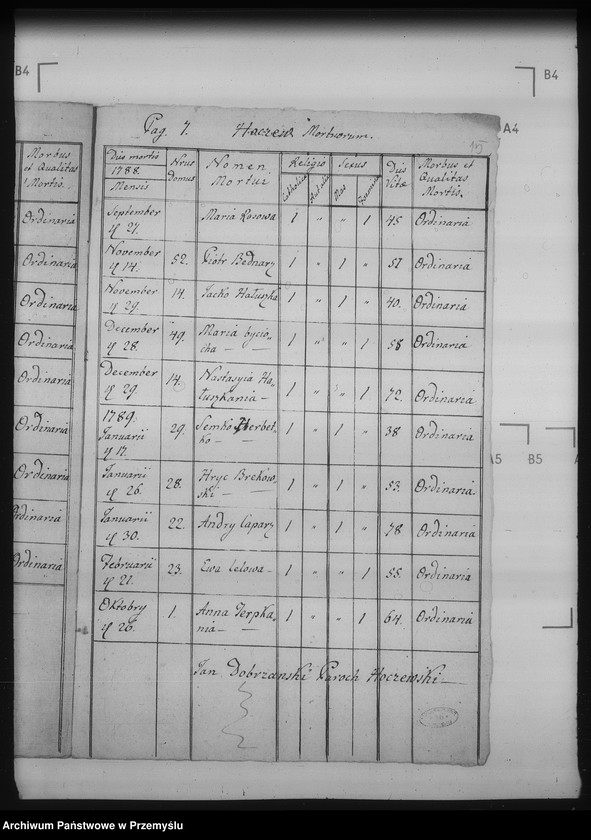 B4
B4
A4
A5
B5
Pag. 7. Haczew Mortuorum.
15
Morbus
et Qualitas
Mortis.
Ordinaria
Ordinaria
Ordinaria
Ordinaria
Ordinaria
Ordinaria
Ordinaria
Ordinaria
Ordinaria
Dies mortis
1788.
Mensis
Nrus
Domus
Nomen
Mortui
Religio
Catholica
Sexus
Mas
Dies
Vitæ
Morbus et
Qualitas
Mortis.
September
21.
Maria Rosowa
1 " " 1 45 Ordinaria
November
14.
52. Piotr Bednarz
1 " 1 " 51 Ordinaria
November
29.
14. Jacko Hałuszka
1 " 1 " 40. Ordinaria
December
28.
49. Maria
cha —
1 " " 1 58 Ordinaria
December
29
14. Nastasyia Ha
łuszkania —
1 " " 1 72. Ordinaria
1789.
Januarii
17.
29. Semko Herbet
ko —
1 " 1 " 38 Ordinaria
Januarii
26.
28. Hryc Brekow
ski —
1 " 1 " 53. Ordinaria
Januarii
30.
22. Andry Caparz
1 " 1 " 78 Ordinaria
Februarii
21.
23. Ewa Lelowa —
1 " " 1 55. Ordinaria
Oktobry
26.
1. Anna Terpka
nia —
1 " " 1 64. Ordinaria
Jan Dobrzanski Paroch Hoczewski
Archiwum Państwowe w Przemyślu